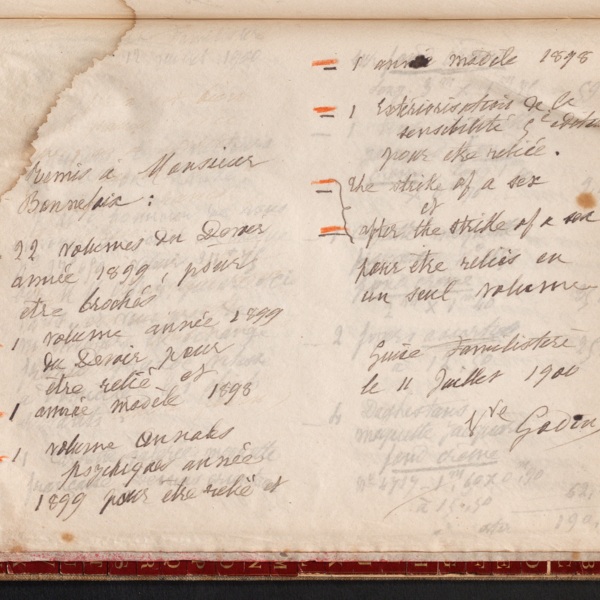 Remis à Monsieur
Bonnefoix :
22 volumes du Devoir
année 1899, pour
être brochés
1 volume année 1899
du Devoir pour
être relié et
1 année modèle 1898
1 volume annales
psychiques année
1899 pour être relié et
1 année modèle 1898
1 Extériorisation de la
sensibilité
pour être reliée.
The strike of a sex
et
after the strike of a sex
pour être reliés en
un seul volume
Guise Familistère
le 11 Juillet 1900
Vve Godin